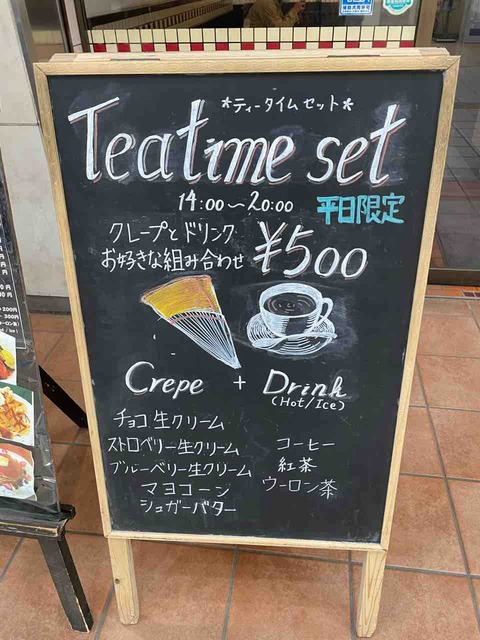 *ティータイムセット*
Teatime set
14:00～20:00 平日限定
クレープとドリンク
お好きな組み合わせ ¥500
Crepe + Drink
(Hot/Ice)
チョコ生クリーム
ストロベリー生クリーム
ブルーベリー生クリーム
マヨコーン
シュガーバター
コーヒー
紅茶
ウーロン茶